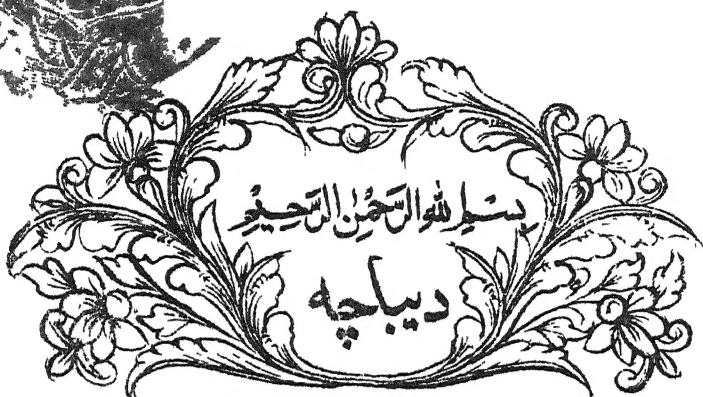 بِسْمِ اللهِ الرَّحْمٰنِ الرَّحِيْمِ
دیباچه